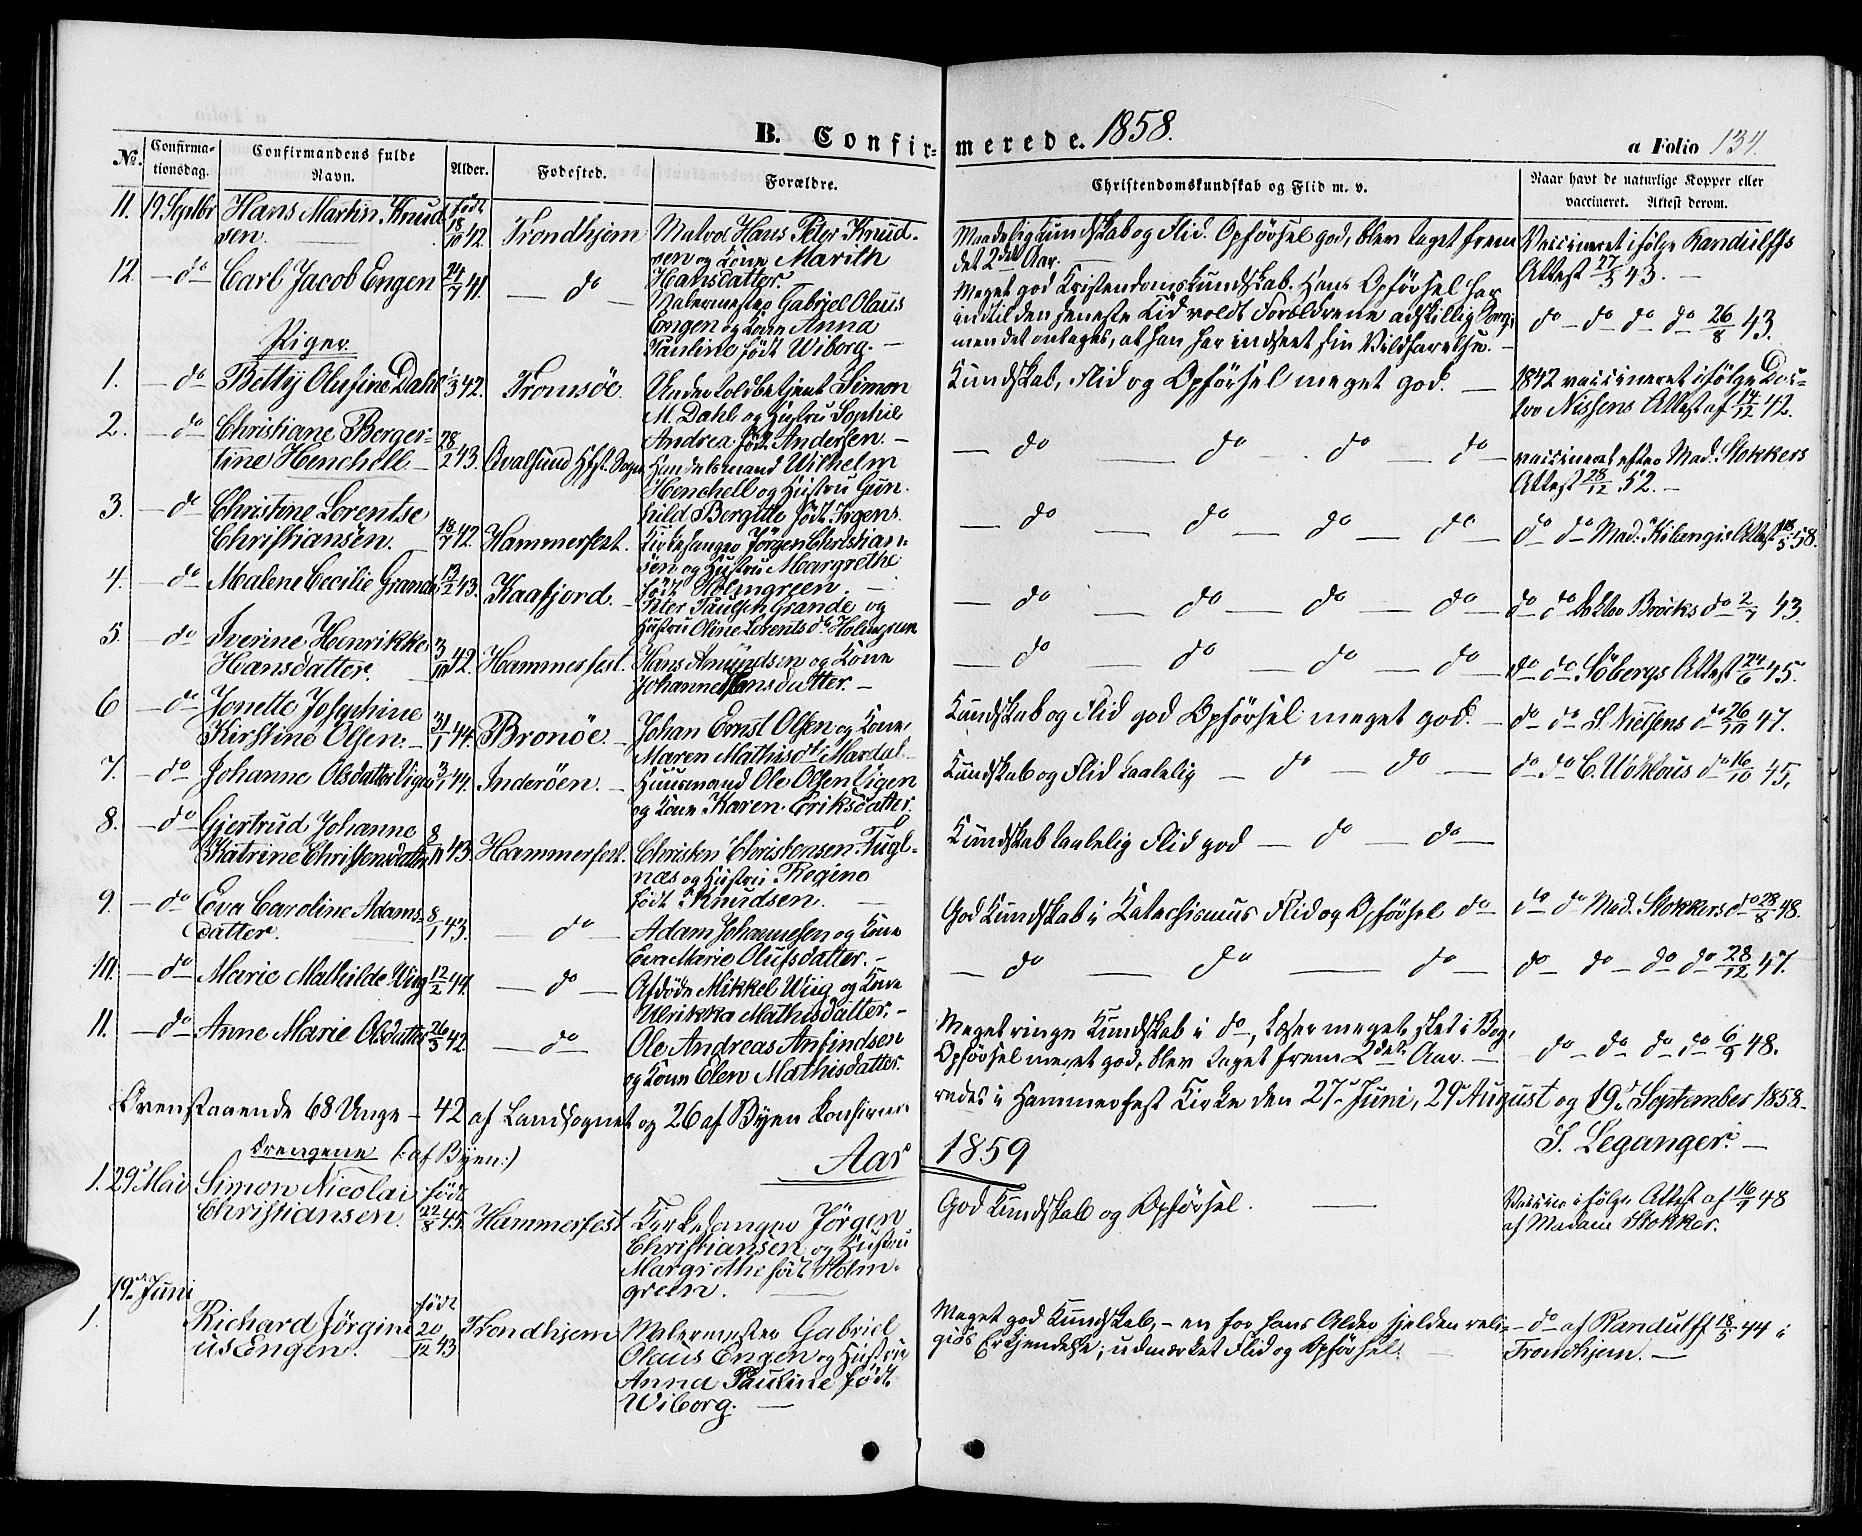 B. Confir= merede. 1858.
a Folio 134.
No. Confirma-tionsdag. Confirmandens fulde Navn. Alder. Fødested. Forældre. Christendomskundskab og Flid m. v. Naar havt de naturlige Kopper eller vaccineret. Attest derom.
11. 19 Septbr Hans Martin Knud- født 18/10 42. Trondhjem Matros Hans Peter Knud- Maadelig Kundskab og Flid. Opførsel god, blev taget frem Vaccineret ifølge Randulffs
sen. sen og Kone Marith det 2det Aar. — Attest 27/5 43. —
12. — do — Carl Jacob Engen 24/7 41. — do — Hansdatter. Meget god Kristendomskundskab. Hans Opførsel har
Malermester Gabriel Olaus indtil den seneste Tid voldt Forældrene adskillig Sorg,
Engen og Kone Anna men det antages, at han har indseet sin Vildfarelse. — do — do do do 26/8 43.
Pauline født Wiborg. —
Piger.
1. — do Betty Olufine Dahl 1/3 42. Tromsøe. Undertoldbetjent Simon Kundskab, Flid og Opførsel meget god. — 1842 vaccineret ifølge Doc-
M. Dahl og Hustru Sophie tor Nissens Attest af 14/12 42.
2. — do Christiane Berger- 28/2 43. Qvalsund Hfst. Sogn Andrea født Andersen. — — do — do — do — do — vaccineret efter Mad. Stokkers
tine Henchell Handelsmand Wilhelm Attest 28/12 52. —
Henchell og Hustru Gun-
3. — do Christine Lorentse hild Bergitte født Irgens. — do — do — do — do — do do Mad. Kilengis Attest 18/5 58.
Christiansen. 18/7 42. Hammerfest. Kirkesanger Jörgen Christian-
sen og Hustru Margrethe
4. — do — Malene Cecilie Grande 13/2 43. Kaafjord. født Holmgreen. — — do — do — do — do — do do Doktor Brocks do 2/7 43.
Peter Paulsen Grande og
Hustru Oline Lorentsdr Holmgreen
5. — do Iverine Henrikke 3/10 42. Hammerfest. Hans Amundsen og Kone — do — do — do — do — do do Söbergs Attest 24/6 45.
Hansdatter. Johanne Hansdatter. —
6 — do Jonette Josephine 31/1 44. Bronöe. — Johan Ernst Olsen og Kone Kundskab og Flid god Opførsel meget god. — do do S. Nielsens do 26/10 47.
Kirstine Olsen. Maren Mathisdr Mardal
7. — do — Johanne Olsdatter Vigen 3/1 44. Inderöen. — Huusmand Ole Olsen Vigen Kundskab og Flid taalelig — do — do — do do 16/10 45.
og Kone Karen Eriksdatter.
8. — do — Gjertrud Johanne 8/10 43. Hammerfest. Christen Christensen Fugl- Kundskab taalelig Flid god — do — do —
Katrine Christensdatter næs og Hustru Regine
født Knudsen. —
9. — do Eva Caroline Adams- 8/1 43. — do — Adam Johannesen og Kone God Kundskab i Katechismus Flid og Opførsel do — do do Mad. Stokkers do 28/8 48.
datter. Eva Marie Olufsdatter. —
10. — do — Marie Mathilde Wiig 12/2 44. — do — Afdøde Mikkel Wiig og Kone — do — do — do — do — do — do do 28/12 47.
Ulrikka Mathisdatter. —
11. — do — Anne Marie Olsdatter 26/5 42. — do — Ole Andreas Anfindsen Meget ringe Kundskab i do, læser meget slet i Bog,
og Kone Elen Mathisdatter. Opførsel meget god, blev taget frem 2det Aar. — do — do do do 6/9 48.
Ovenstaaende 68 Unge — 42 af Landsognet og 26 af Byen konfirme- redes i Hammerfest Kirke den 27de Juni, 29 August og 19de September 1858.
S. Leganger. —
Drengene (: af Byen :) Aar 1859
1. 29 Mai Simon Nicolai født 22/8 45. Hammerfest Kirkesanger Jörgen God Kundskab og Opførsel. — Vaccin. ifølge Attest af 16/9 48
Christiansen. Christiansen og Hustru af Madam Stokker.
Margrethe født Holm-
green. —
19de Juni
1. Richard Jörgini- født 20/12 43 Trondhjem Malermester Gabriel Meget god Kundskab, — en for hans Alder sjelden reli- — do — af Randulff 18/5 44 i
us Engen. Olaus Engen og Hustru giøs Erkjendelse; udmærket Flid og Opførsel. — Trondhjem. —
Anna Pauline født
Wiborg. —